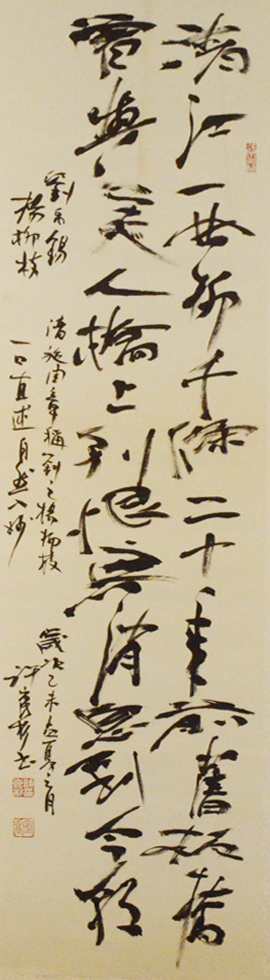 清江一曲柳千條二十年前舊板橋
曾與美人橋上別恨無消息到今朝
劉禹錫
楊柳枝
清施閏章稱劉之楊柳枝
一口直述自然入妙
歲次乙未夏之月
許書